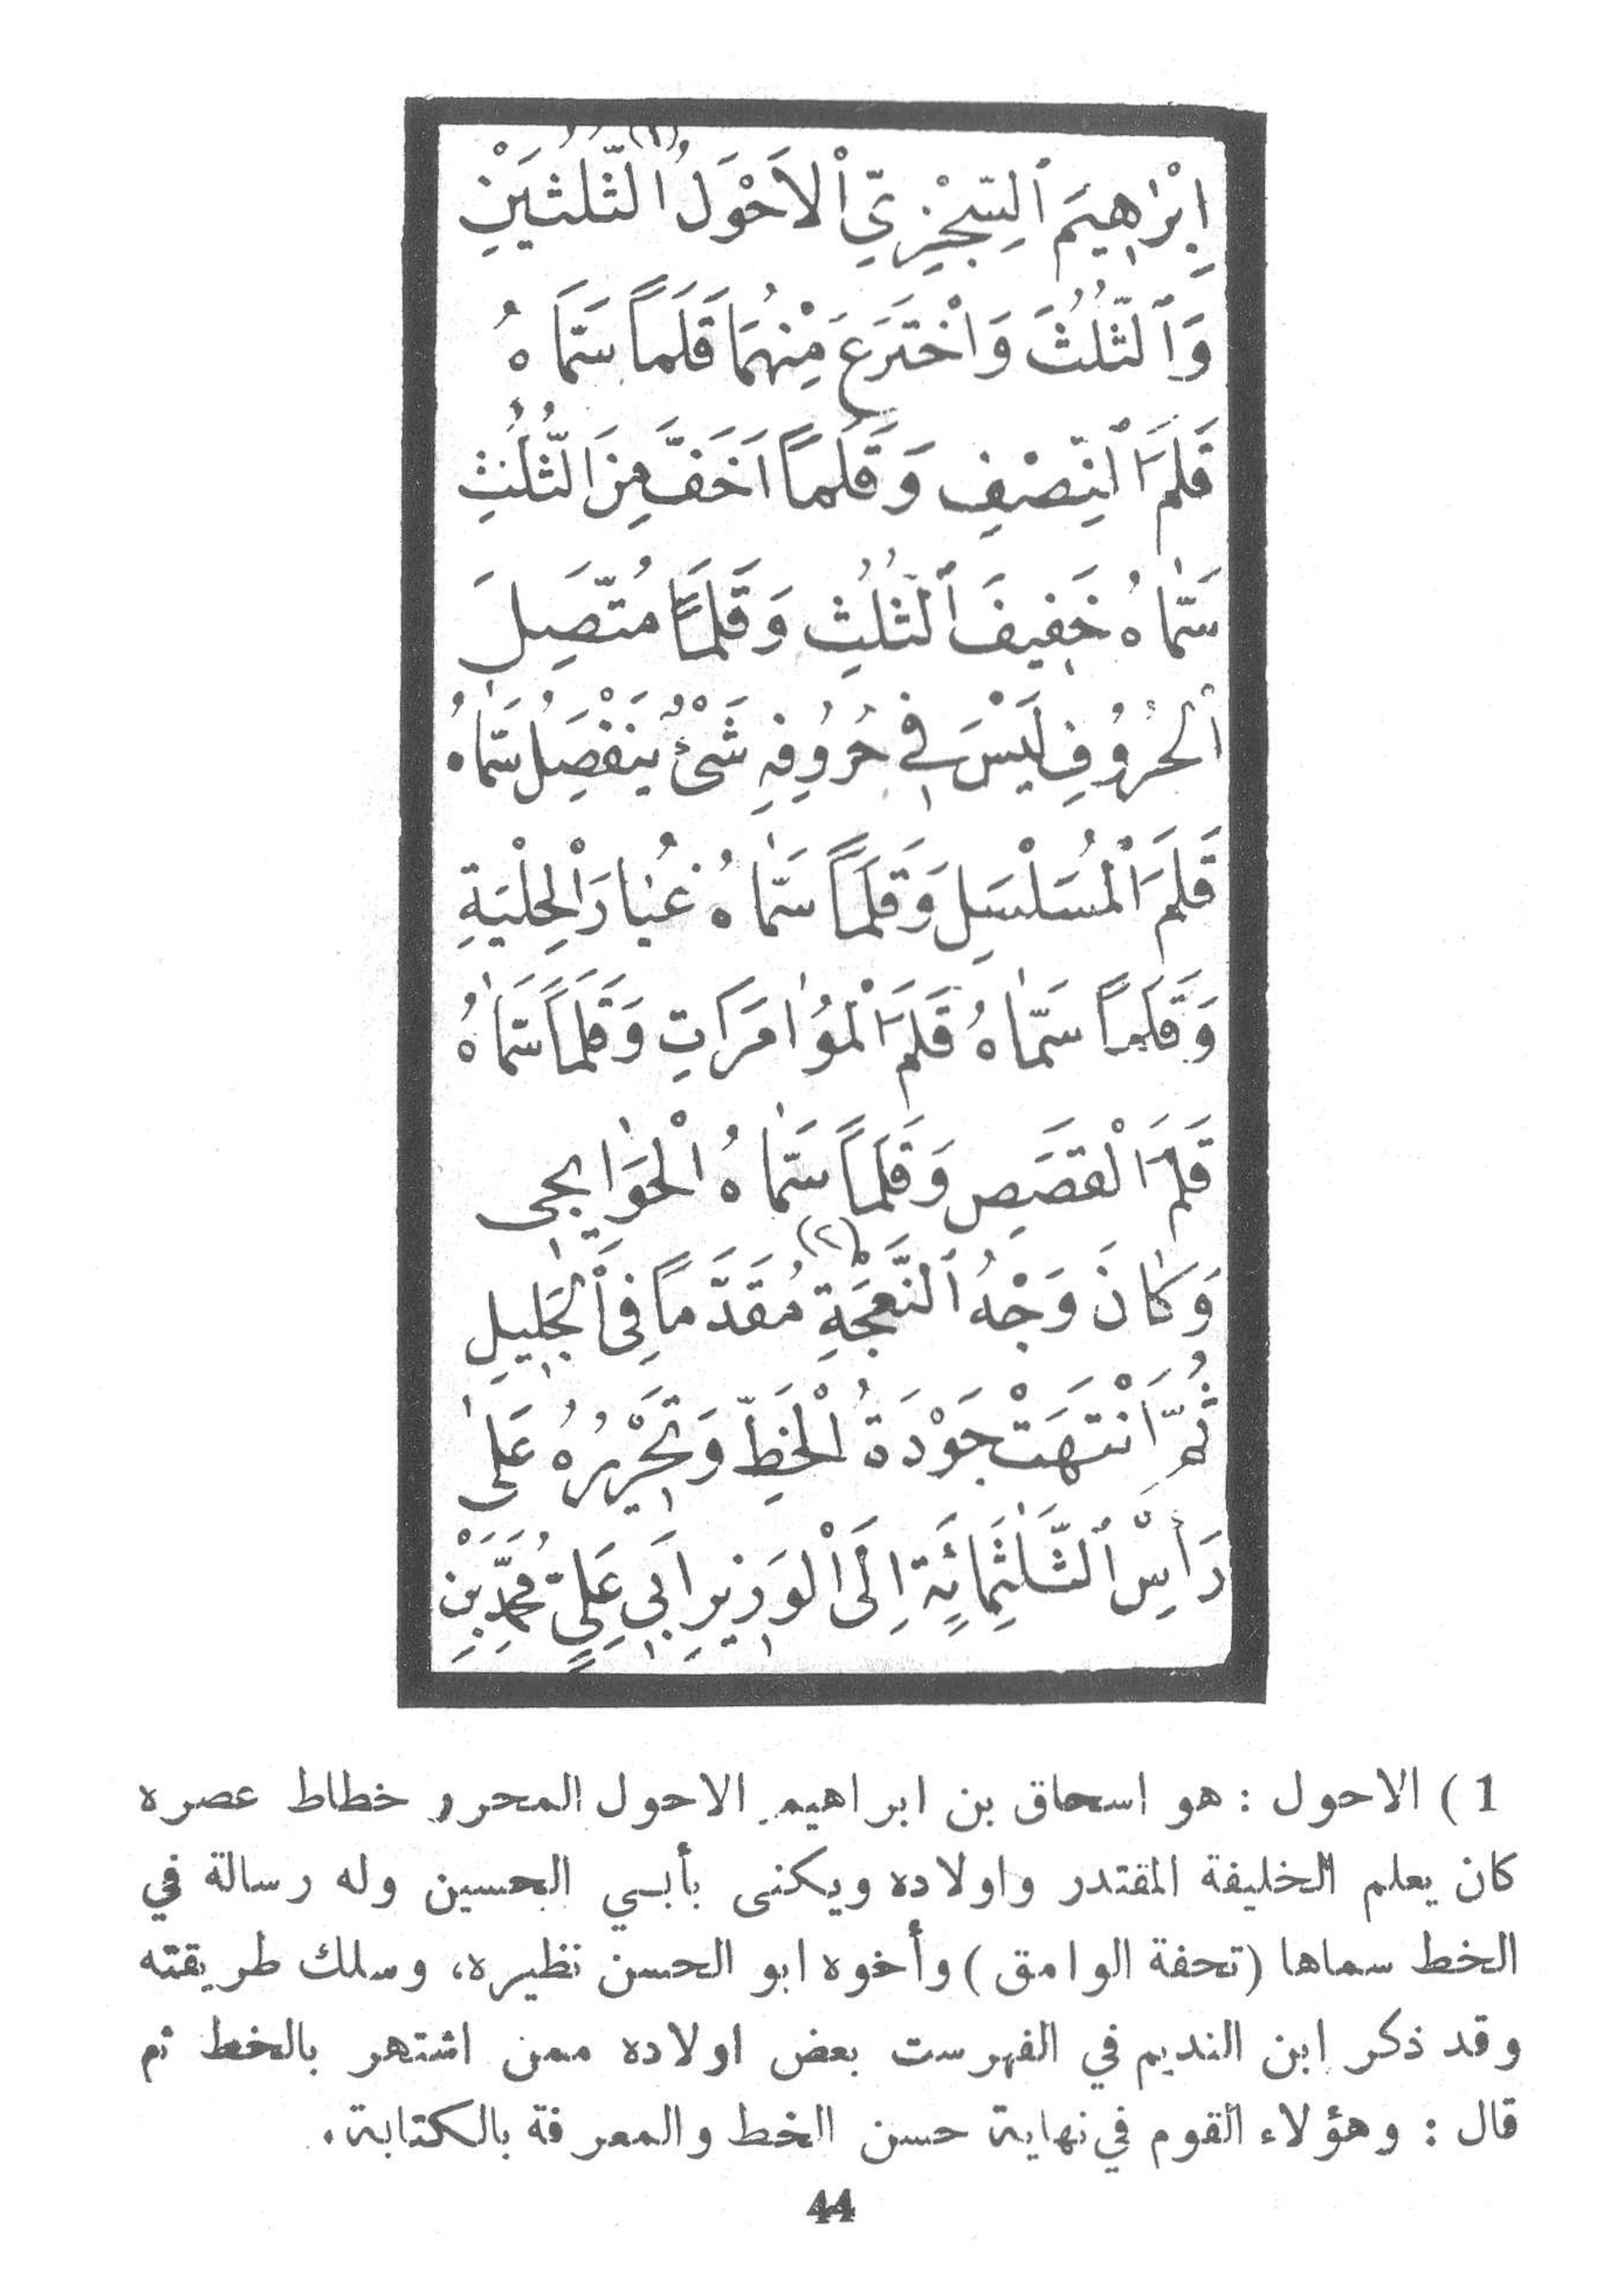 اِبْرٰاهِيمَ ٱلسِّجْزِيِّ ٱلاَحْوَلُ (١) الثُّلُثَيْنِ
وَٱلثُّلُثَ وَاخْتَرَعَ مِنْهُمَا قَلَماً سَمَّاهُ
قَلَمَ ٱلنِّصْفِ وَقَلَماً اَخَفَّ مِنَ الثُّلُثِ
سَمَّاهُ خَفِيفَ ٱلثُّلُثِ وَقَلَماً مُتَّصِلَ
ٱلْحُرُوُفِ لَيْسَ فِي حُرُوُفِهِ شَىْءٌ يَنْفَصِلُ سَمَّاهُ
قَلَمَ ٱلْمُسَلْسَلِ وَقَلَماً سَمَّاهُ غُبٰارَ الْحِلْيَةِ
وَقَلَماً سَمَّاهُ قَلَمَ الْمُؤٰامَرَاتِ وَقَلَماً سَمَّاهُ
قَلَمَ الْقَصَصِ وَقَلَماً سَمَّاهُ الْحَوٰايِجِى
وَكٰانَ وَجْهُ ٱلنَّعْجَةِ (٢) مُقَدَّماً فِى ٱلْجَلِيلِ
ثُمَّ انْتَهَتْ جَوْدَةُ الْخَطِّ وَتَحْرِيْرُهُ عَلىٰ
رَاْسِ ٱلثَّلٰثِمِائَةٍ اِلَى الْوَزِيرِ اَبِي عَلِيٍّ مُحَمَّدِ بْنِ
1) الاحول : هو اسحاق بن ابراهيم الاحول المحرر خطاط عصره
كان يعلم الخليفة المقتدر واولاده ويكنى بأبي الحسين وله رسالة في
الخط سماها (تحفة الوامق) وأخوه ابو الحسن نظيره، وسلك طريقته
وقد ذكر ابن النديم في الفهرست بعض اولاده ممن اشتهر بالخط ثم
قال : وهؤلاء القوم في نهاية حسن الخط والمعرفة بالكتابة.
44